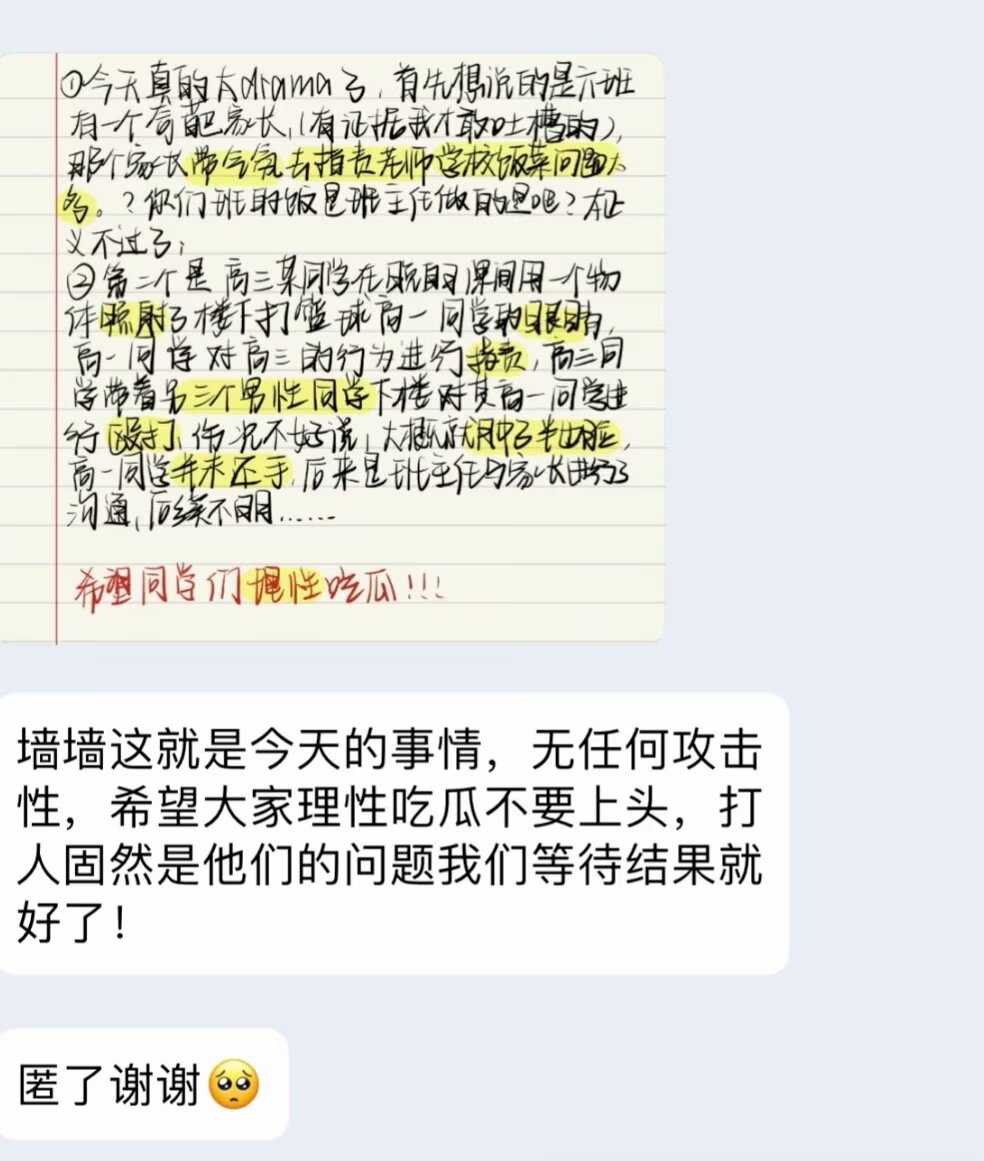 ①今天真的太drama了，首先想说的是六班
有一个奇葩家长，(有证据我才敢吐槽的)，
那个家长带气氛去指责老师学校饭菜问题太
多。？你们班的饭是班主任做的是吧？
义不过了；
②第二个是高三某同学在晚自习课间用一个物
体照射了楼下打篮球高一同学的眼睛，
高一同学对高三的行为进行指责，高三同
学带着另三个男性同学下楼对其高一同学进
行殴打，伤况不好说，大概就肿了半边脸，
高一同学并未还手，后来是班主任与家长进行了
沟通，后续不明……
希望同学们理性吃瓜!!!
墙墙这就是今天的事情，无任何攻击
性，希望大家理性吃瓜不要上头，打
人固然是他们的问题我们等待结果就
好了！
匿了谢谢🥺